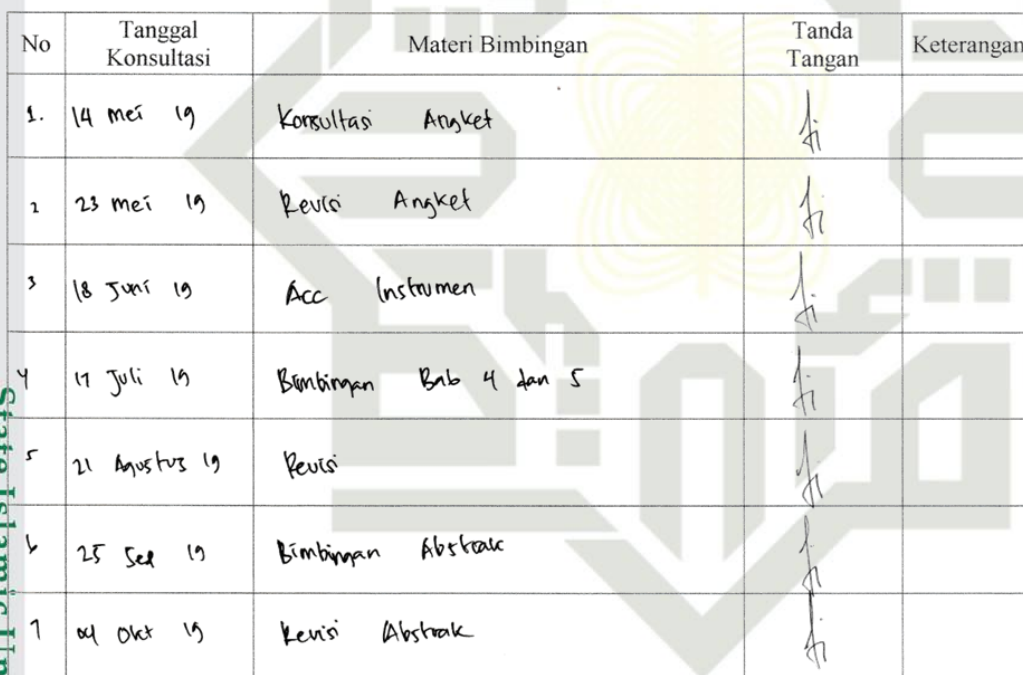 No Tanggal Konsultasi Materi Bimbingan Tanda Tangan Keterangan
1. 14 mei 19 Konsultasi Angket
2 23 mei 19 Revisi Angket
3 18 Juni 19 Acc Instrumen
4 17 Juli 19 Bimbingan Bab 4 dan 5
5 21 Agustus 19 Revisi
6 25 Sep 19 Bimbingan Abstrak
7 04 Okt 19 Revisi Abstrak
State Islamic Un